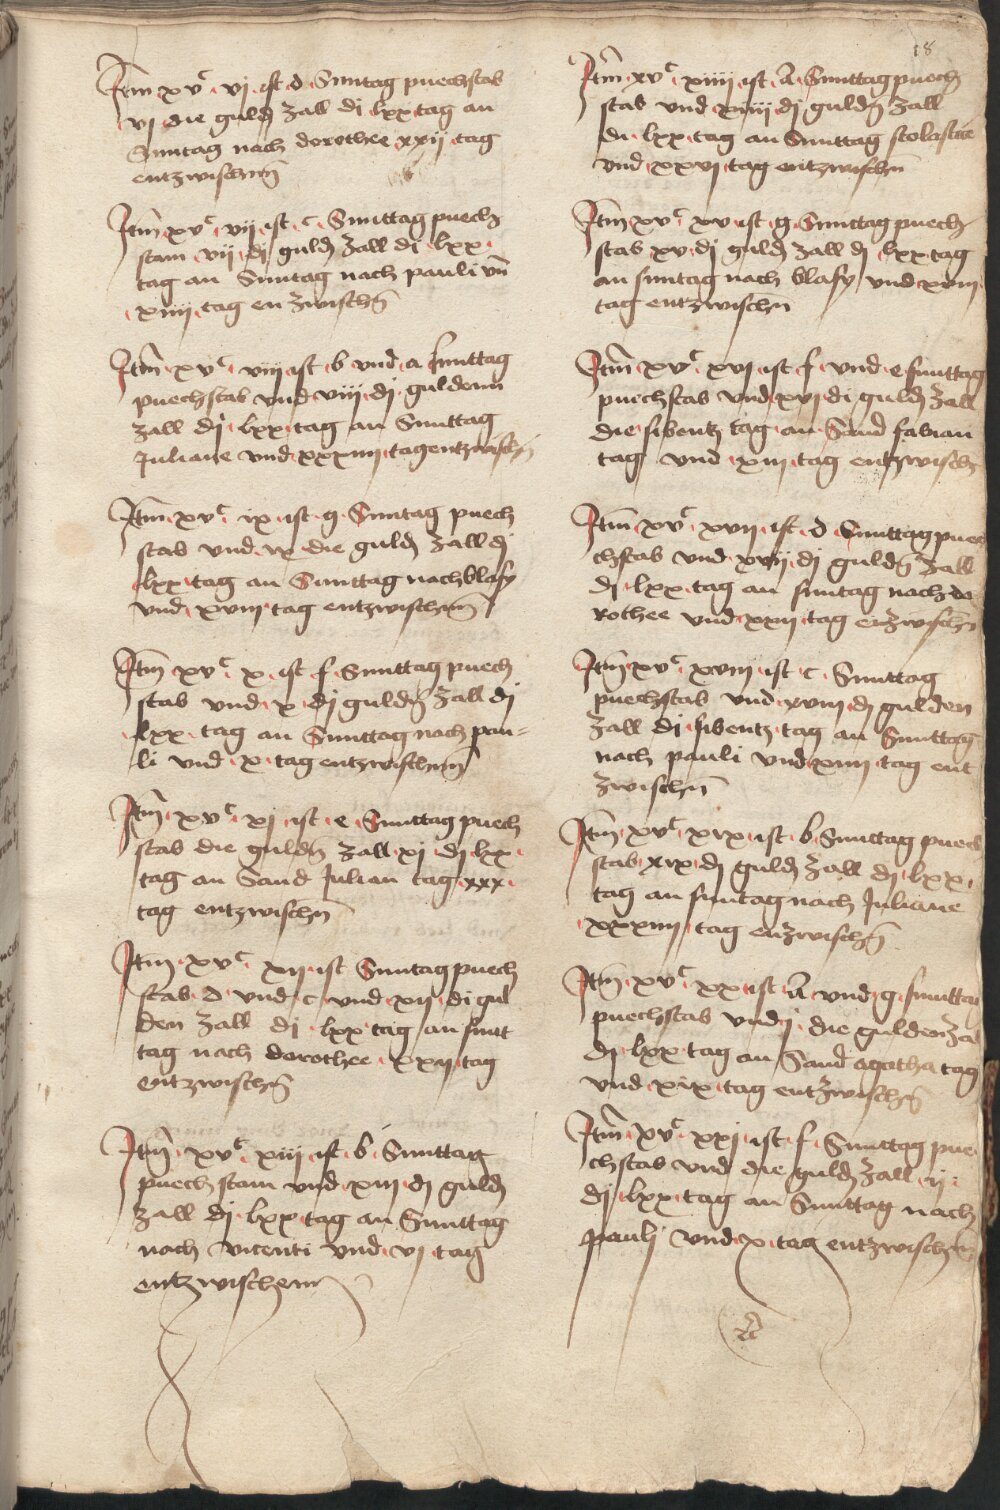 18
Itm xvᶜ vj ist d Suntag puechstab
vj die guld zall di lxx tag an
Suntag nach dorothee xxij tag
entzwischnn
Itm xvᶜ vij ist c Sunttag puech
stam vij dj guld zall di lxx
tag an Suntag nach pauli vnd
xiiij tag en zwischn
Itm xvᶜ viij ist b vnd a sunttag
puechstab vnd viij dj guldenn
zall dj lxx tag an Sunttag
Juliane vnd xxxiiij tag entzwischn
Itm xvᶜ ix ist g Suntag puech
stab vnd ix die guld zall dj
lxx tag an Sunttag nach blasy
vnd xviij tag entzwischnn
Itm xvᶜ x ist f Sunttag puech
stab vnd x dj guldn zall dj
lxx tag an Sunttag nach pau=
li vnd x tag entzwischnn
Itm xvᶜ xj ist e Sunttag puech
stab die guldn zall xj dj lxx
tag an Sand Julian tag xxx
tag entzwischn
Itm xvᶜ xij ist Suntag puech
stab d vnd c vnd xij di gul
den zall dj lxx tag an sunt
tag nach dorothee xxij tag
entzwischn
Itm xvᶜ xiij ist b Sunttag
puech stam vnd xiij dj guld
zall dj lxx tag an Sunttag
nach vicenti vnd vj tag
entzwischenn
Itm xvᶜ xiiij ist A Sunttag puech
stab vnd xiiij dj guldn zall
di lxx tag an Sunttag scolastice
vnd xxvj tag entzwischn
Itm xvᶜ xv ist g Sunttag puech
stab xv dj guld zall dj lxx tag
an suntag nach blasy vnd xviij
tag entzwischn
Itm xvᶜ xvj ist f vnd e sunttag
puechstab vnd xvj di guld zall
die sibentz tag an Sand fabian
tag vnd xiij tag entzwisch
Itm xvᶜ xvij ist d Sunttag pue
chstab vnd xvij dj guldn zall
dj lxx tag an suntag nach do
rothee vnd xxij tag enzwischn
Itm xvᶜ xviij ist c Sunttag
puechstab vnd xviij dj gulden
zall dj sibentz tag an Sunttag
nach pauli vnd xiiij tag ent
zwischn
Itm xvᶜ xix ist b Sunttag puech
stab xix dj guld zall dj lxx
tag an suntag nach Juliane
xxxiiij tag enzwischn
Itm xvᶜ xx ist A vnd g sunttag
puechstab vnd j die gulden zal
dj lxx tag an Sand agatha tag
vnd xix tag entzwischn
Itm xvᶜ xxj ist f Sunttag pue
chstab vnd die guld zall ij
dj lxx tag an Sunttag nach
paulj vnd x tag entzwischn